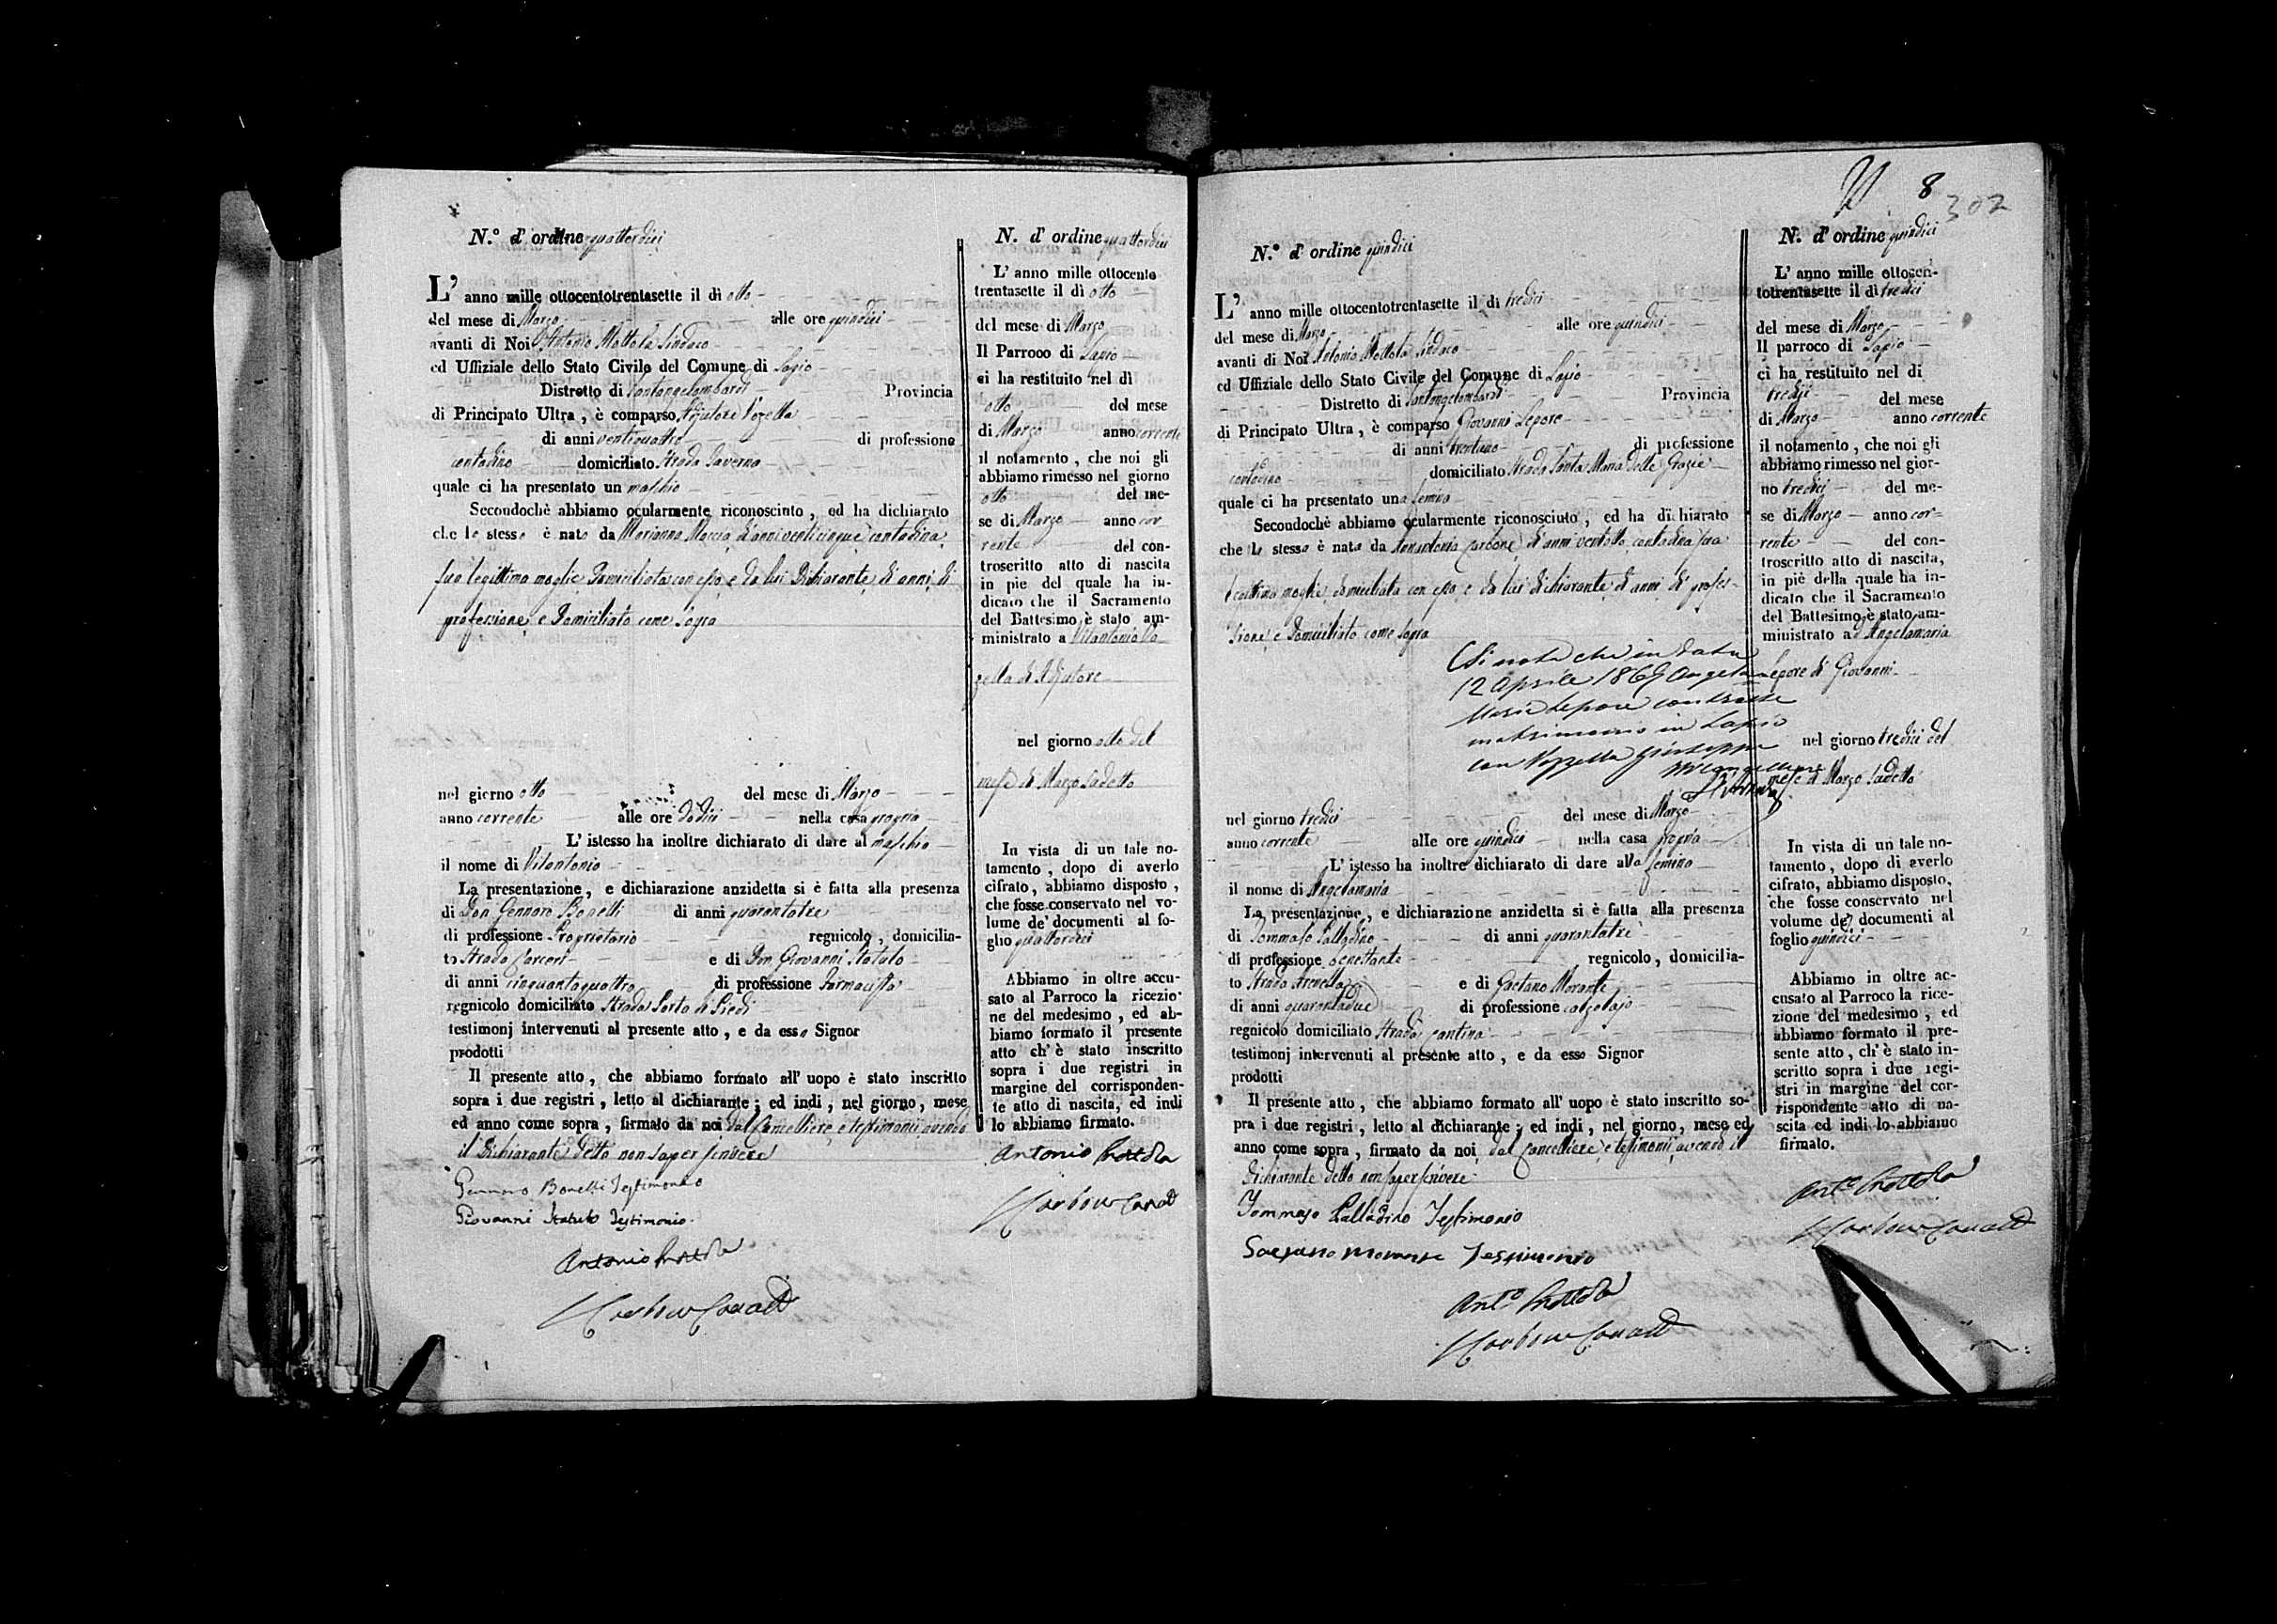 N.º d'ordine quattordici
L' anno mille ottocentotrentasette il dì otto
del mese di Marzo alle ore quindici
avanti di Noi Antonio Mottola Sindaco
ed Uffiziale dello Stato Civile del Comune di Lapio
Distretto di Santangelombardi Provincia
di Principato Ultra, è comparso Adjutore Vozella
di anni ventiquattro di professione
contadino domiciliato Strada Taverna
quale ci ha presentato un maschio
Secondochè abbiamo ocularmente riconosciuto, ed ha dichiarato
che lo stesso è nato da Marianna Maccia d'anni venticinque contadina
sua legittima moglie domiciliata con esso, e da lui Dichiarante di anni, di
professione, e domiciliato come sopra
nel giorno otto del mese di Marzo
anno corrente alle ore dodici nella casa propria
L' istesso ha inoltre dichiarato di dare al maschio
il nome di Vitantonio
La presentazione, e dichiarazione anzidetta si è fatta alla presenza
di Don Gennaro Bonelli di anni quarantatre
di professione Proprietario regnicolo, domicilia-
to Strada Carceri e di Don Giovanni Statuto
di anni cinquantaquattro di professione Farmacista
regnicolo domiciliato Strada Porto di Piedi
testimonj intervenuti al presente atto, e da esso Signor
prodotti
Il presente atto, che abbiamo formato all' uopo è stato inscritto
sopra i due registri, letto al dichiarante; ed indi, nel giorno, mese
ed anno come sopra, firmato da noi dal Cancelliere, e testimonii avendo
il Dichiarante detto non saper scrivere
Gennaro Bonelli Testimonio
Giovanni Statuto Testimonio
Antonio Mottola
N. d' ordine quattordici
L' anno mille ottocento
trentasette il dì otto
del mese di Marzo
Il Parroco di Lapio
ci ha restituito nel dì
otto del mese
di Marzo anno corrente
il notamento, che noi gli
abbiamo rimesso nel giorno
otto del me-
se di Marzo anno cor
rente del con-
troscritto atto di nascita
in piè del quale ha in-
dicato che il Sacramento
del Battesimo è stato am-
ministrato a Vitantonio Vo-
zella di Adjutore
nel giorno otto del
mese di Marzo sudetto
In vista di un tale no-
tamento, dopo di averlo
cifrato, abbiamo disposto,
che fosse conservato nel vo-
lume de' documenti al fo-
glio quattordici
Abbiamo in oltre accu-
sato al Parroco la ricezio-
ne del medesimo, ed ab-
biamo formato il presente
atto ch' è stato inscritto
sopra i due registri in
margine del corrisponden-
te atto di nascita, ed indi
lo abbiamo firmato.
Antonio Mottola
8
302
N.º d' ordine quindici
L' anno mille ottocentotrentasette il dì tredici
del mese di Marzo alle ore quindici
avanti di Noi Antonio Mottola Sindaco
ed Uffiziale dello Stato Civile del Comune di Lapio
Distretto di Santangelombardi Provincia
di Principato Ultra, è comparso Giovanni Lepore
di anni trentuno di professione
contadino domiciliato Strada Santa Maria delle Grazie
quale ci ha presentato una femina
Secondochè abbiamo ocularmente riconosciuto, ed ha dichiarato
che la stessa è nata da Annantonia Carbone d'anni ventotto contadina sua
legittima moglie domiciliata con esso, e da lui dichiarante di anni di profes-
sione, e domiciliato come sopra
Si nota che in data
12 Aprile 1869 Angela
Maria Lepore contrasse
matrimonio in Lapio
con Vozzella Giuseppe
nel giorno tredici del mese di Marzo
anno corrente alle ore quindici nella casa propria
L' istesso ha inoltre dichiarato di dare alla femina
il nome di Angelamaria
La presentazione, e dichiarazione anzidetta si è fatta alla presenza
di Tommaso Palladino di anni quarantatre
di professione regnicolo, domicilia-
to Strada Arenella e di Gaetano Morante
di anni quarantadue di professione calzolajo
regnicolo domiciliato Strada Cantina
testimonj intervenuti al presente atto, e da esso Signor
prodotti
Il presente atto, che abbiamo formato all' uopo è stato inscritto so-
pra i due registri, letto al dichiarante; ed indi, nel giorno, mese ed
anno come sopra, firmato da noi dal Cancelliere, e testimonii avendo il
Dichiarante detto non saper scrivere
Tommaso Palladino Testimonio
Gaetano Morante Testimonio
Ant.º Mottola
N. d' ordine quindici
L' anno mille ottocen-
totrentasette il dì tredici
del mese di Marzo
Il parroco di Lapio
ci ha restituito nel dì
tredici del mese
di Marzo anno corrente
il notamento, che noi gli
abbiamo rimesso nel gior-
no tredici del me-
se di Marzo anno cor-
rente del con-
troscritto atto di nascita,
in piè della quale ha in-
dicato che il Sacramento
del Battesimo è stato am-
ministrato ad Angelamaria
Lepore di Giovanni
nel giorno tredici del
mese di Marzo sudetto
In vista di un tale no-
tamento, dopo di averlo
cifrato, abbiamo disposto,
che fosse conservato nel
volume de' documenti al
foglio quindici
Abbiamo in oltre ac-
cusato al Parroco la rice-
zione del medesimo, ed
abbiamo formato il pre-
sente atto, ch' è stato in-
scritto sopra i due regi-
stri in margine del cor-
rispondente atto di na-
scita ed indi lo abbiamo
firmato.
Ant.º Mottola